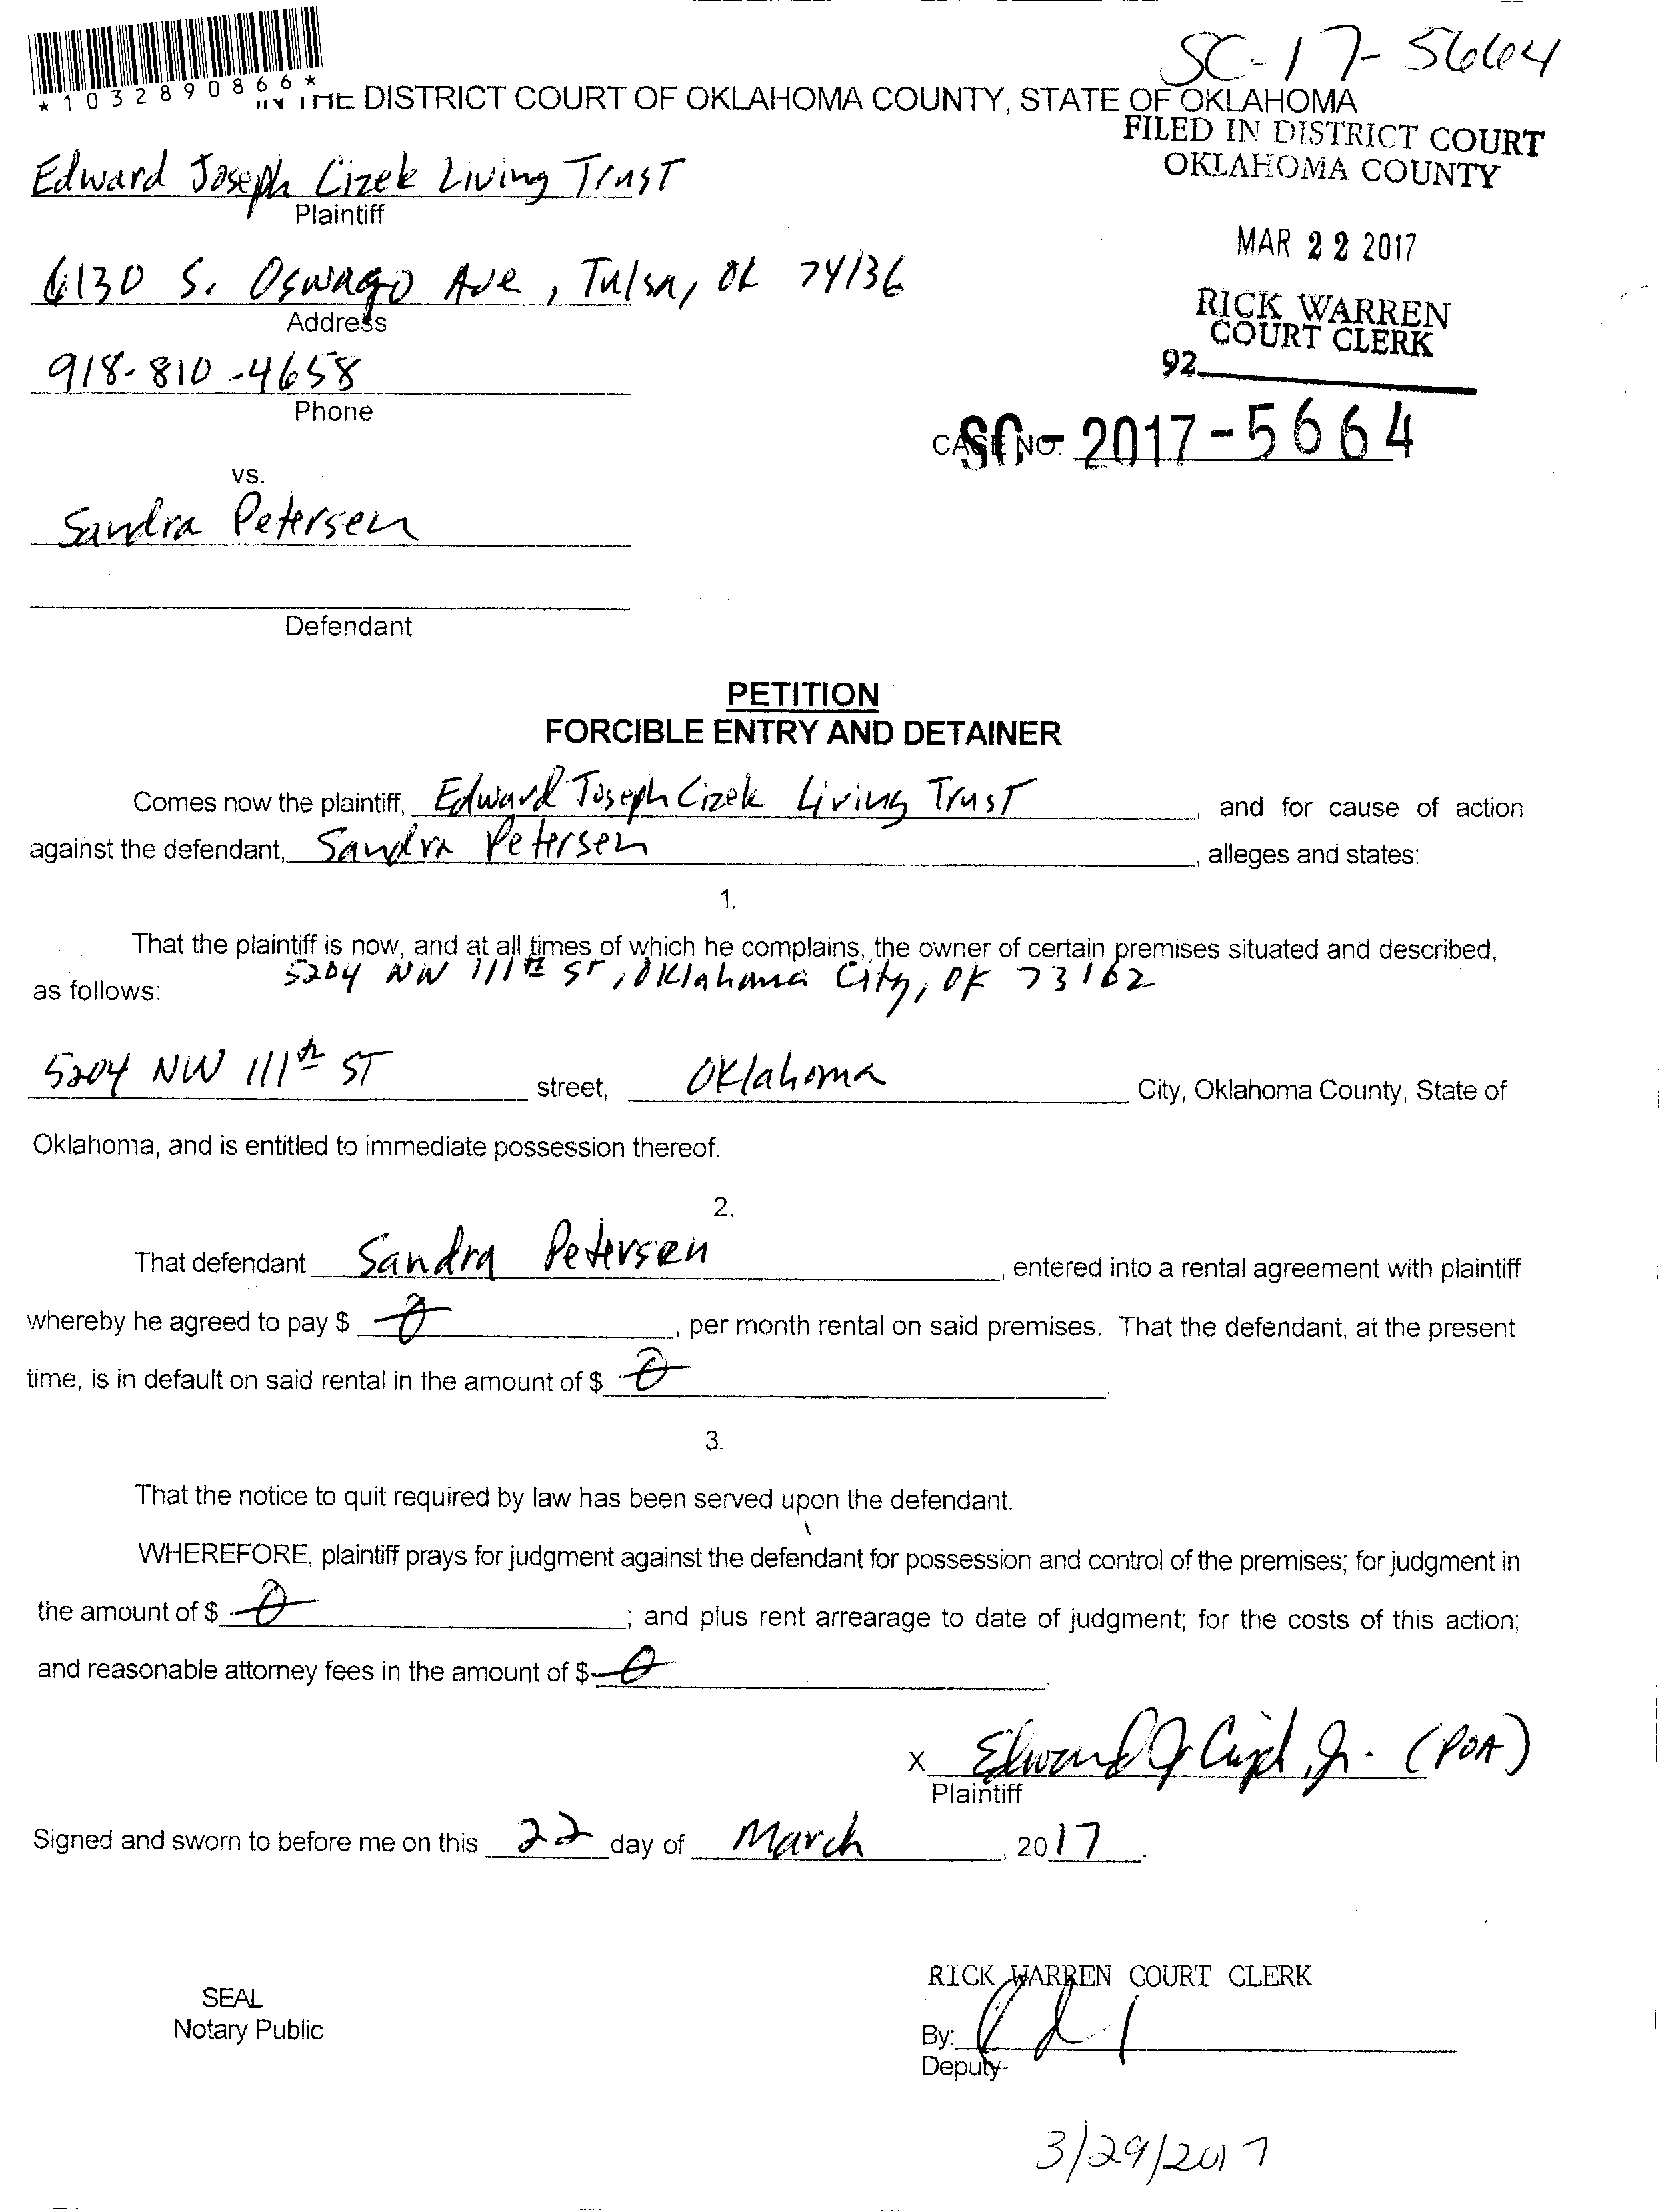 SC-17-5664
*1032890866*
IN THE DISTRICT COURT OF OKLAHOMA COUNTY, STATE OF OKLAHOMA
FILED IN DISTRICT COURT
OKLAHOMA COUNTY
Edward Joseph Cizek Living Trust
Plaintiff
MAR 22 2017
6130 S. Oswago Ave, Tulsa, OK 74136
Address
RICK WARREN
COURT CLERK
92
918-810-4658
Phone
CASE NO. SC-2017-5664
vs.
Sandra Petersen
Defendant
PETITION
FORCIBLE ENTRY AND DETAINER
Comes now the plaintiff, Edward Joseph Cizek Living Trust, and for cause of action
against the defendant, Sandra Petersen, alleges and states:
1.
That the plaintiff is now, and at all times of which he complains, the owner of certain premises situated and described,
as follows: 5204 NW 111th ST, Oklahoma City, OK 73162
5204 NW 111th ST street, Oklahoma City, Oklahoma County, State of
Oklahoma, and is entitled to immediate possession thereof.
2.
That defendant Sandra Petersen, entered into a rental agreement with plaintiff
whereby he agreed to pay $ 0, per month rental on said premises. That the defendant, at the present
time, is in default on said rental in the amount of $ 0.
3.
That the notice to quit required by law has been served upon the defendant.
WHEREFORE, plaintiff prays for judgment against the defendant for possession and control of the premises; for judgment in
the amount of $ 0; and plus rent arrearage to date of judgment; for the costs of this action;
and reasonable attorney fees in the amount of $ 0.
X Edward J Cizek, Jr. (POA)
Plaintiff
Signed and sworn to before me on this 22 day of March, 2017.
RICK WARREN COURT CLERK
SEAL
Notary Public
By:
Deputy
3/29/2017